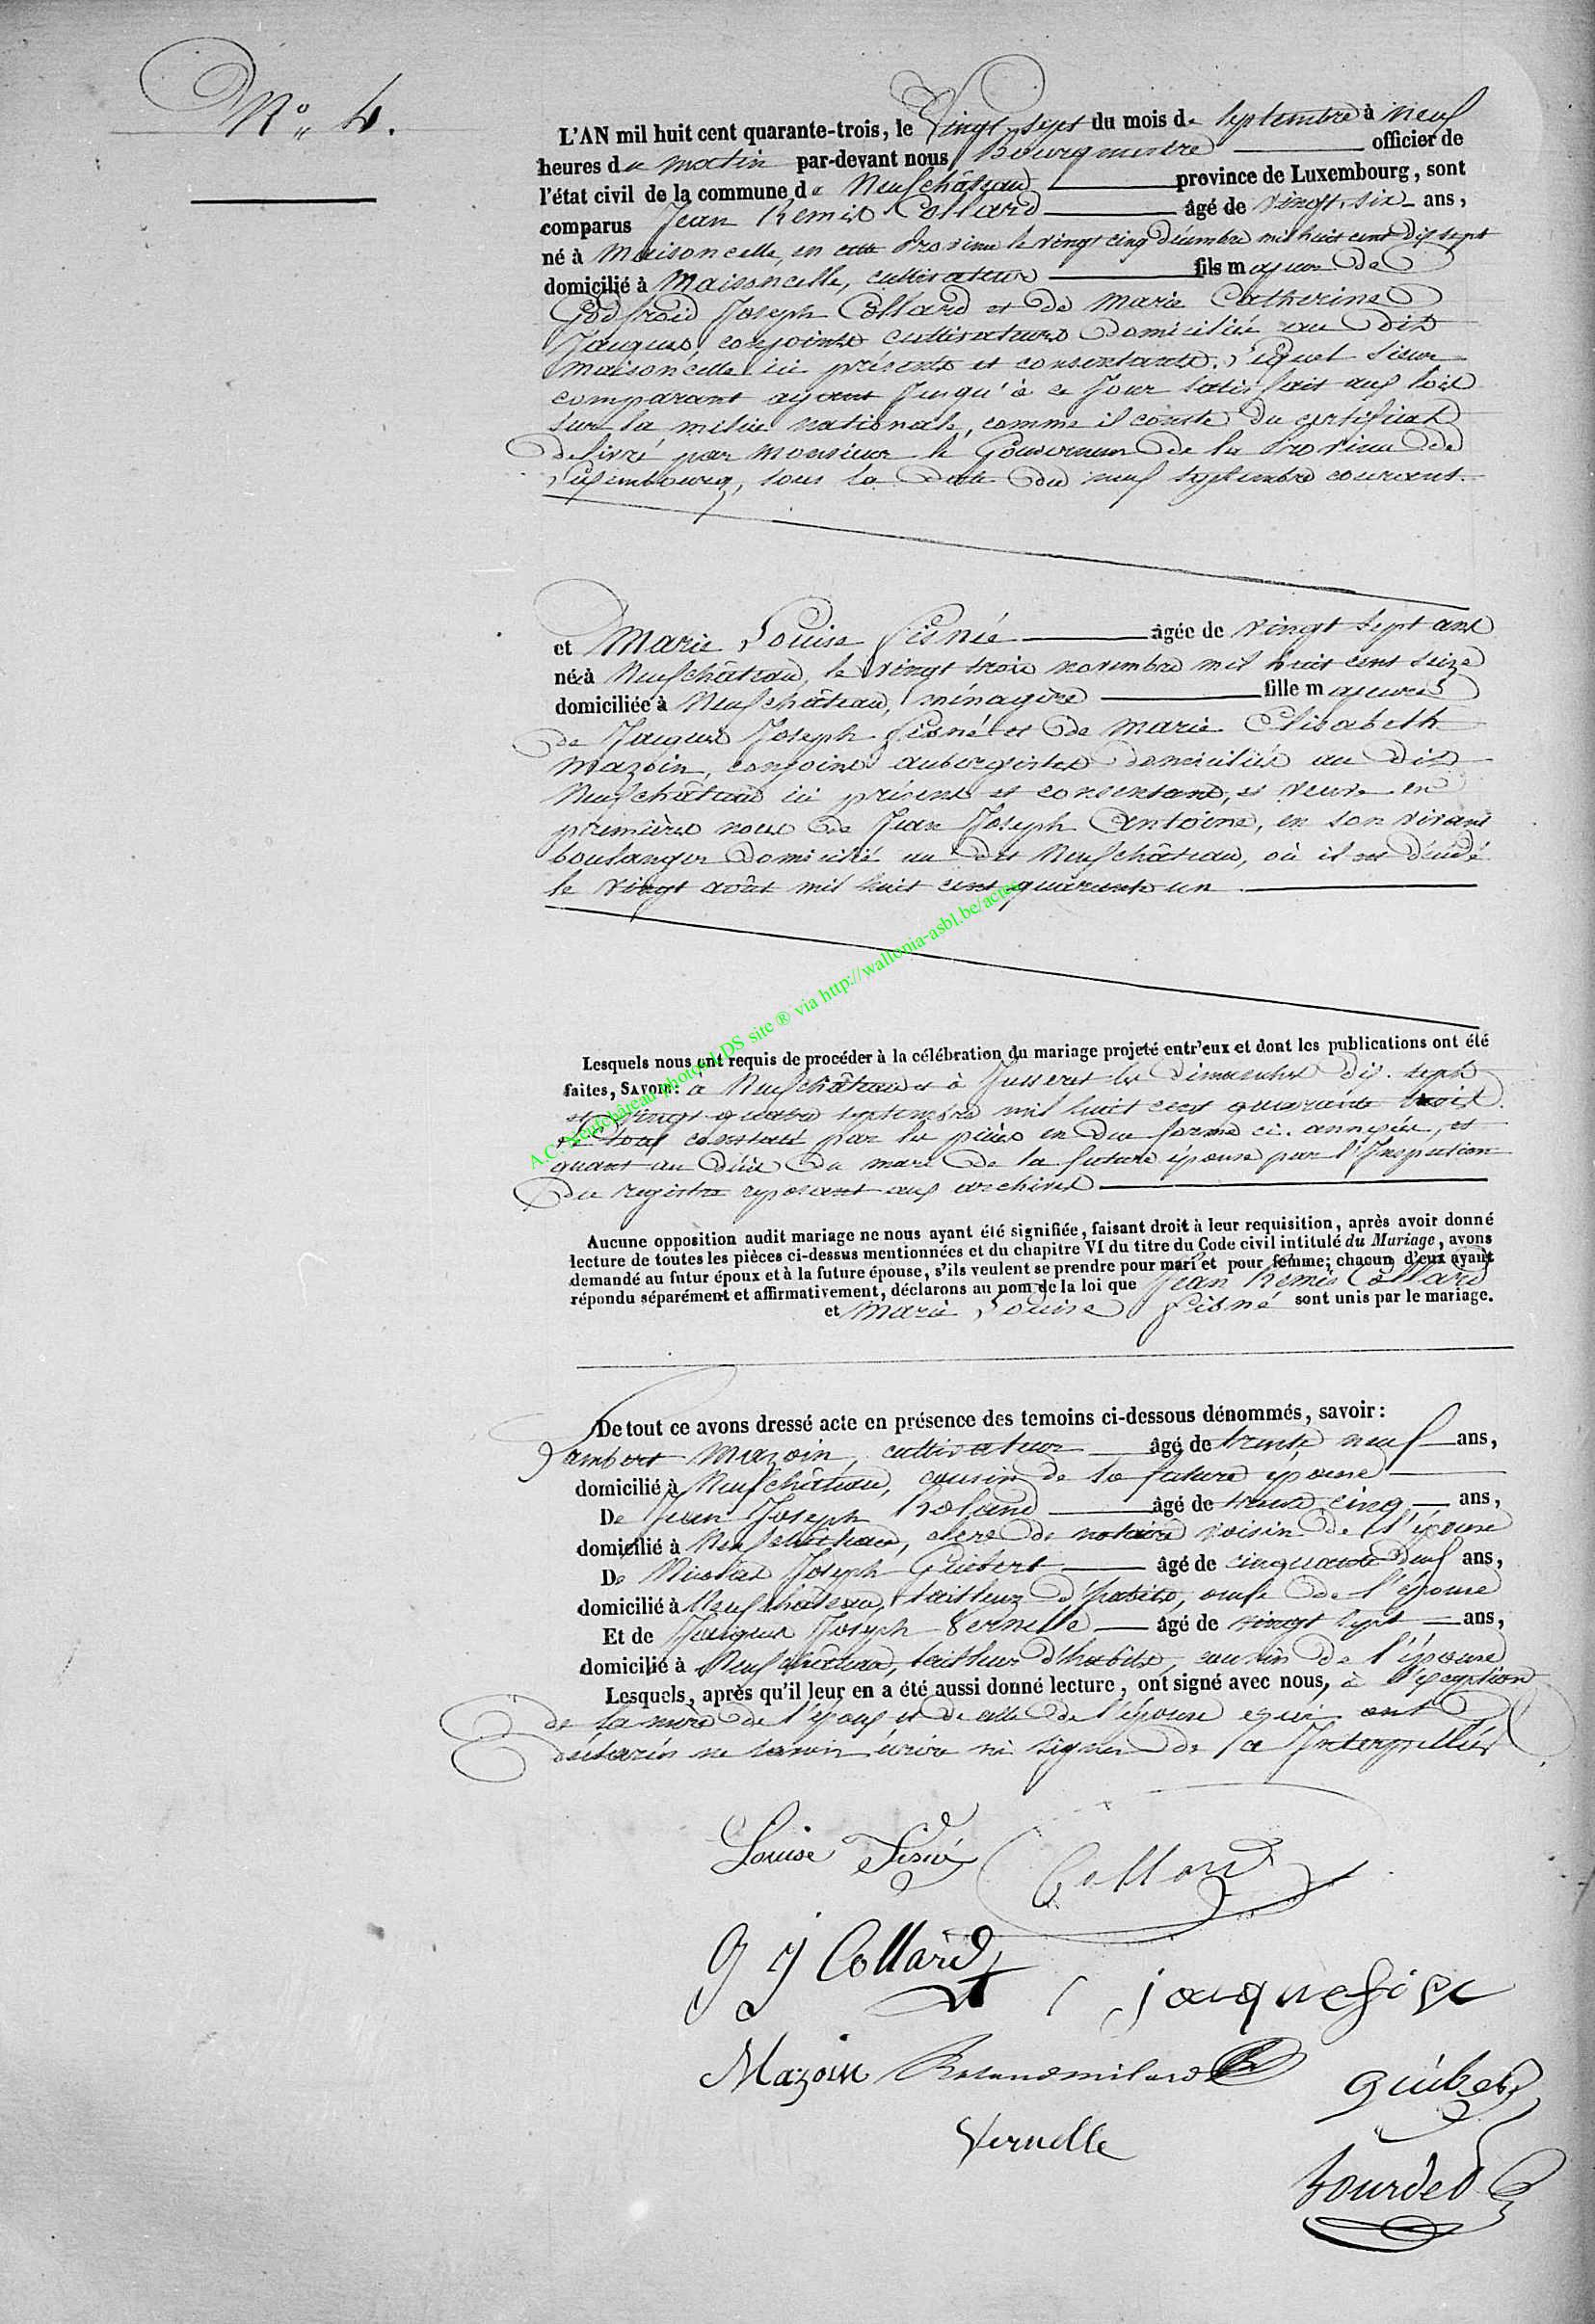 N° 4.
L'AN mil huit cent quarante-trois, le Vingt sept du mois de septembre à neuf
heures du matin par-devant nous Bourgmestre officier de
l'état civil de la commune de Neufchâteau province de Luxembourg, sont
comparus Jean Remis Collard âgé de vingt-six ans,
né à Maisoncelle, en cette Province le vingt cinq décembre mil huit cent dix sept
domicilié à Maisoncelle, cultivateur fils majeur de
Godfroid Joseph Collard et de Marie Catherine
Jaques, conjoints cultivateurs domiciliés au dit
Maisoncelle ici présents et consentants. Lequel sieur
comparant ayant jusqu'à ce jour satisfait aux lois
sur la milice nationale, comme il conste du certificat
delivré par Monsieur le Gouverneur de la Province de
Luxembourg, sous la date du neuf septembre courant.
et Marie Louise Fisnée âgée de vingt sept ans
née à Neufchâteau, le vingt trois novembre mil huit cent seize
domiciliée à Neufchâteau, ménagère fille majeure
de Jaques Joseph Fisné et de Marie Elisabeth
Mazoin, conjoints aubergistes domiciliés au dit
Neufchâteau ici présents et consentants, et veuve en
premières noces de Jean Joseph Antoine, en son vivant
boulanger domicilié au dit Neufchâteau, où il est décédé
le vingt août mil huit cent quarante un
A.C. Neufchâteau photos LDS site ® via http://wallonia-asbl.be/actes
Lesquels nous ont requis de procéder à la célébration du mariage projeté entr'eux et dont les publications ont été
faites, SAVOIR: à Neufchâteau et à Jusseret les dimanches dix-sept
et vingt quatre septembre mil huit cent quarante trois.
Le tout constaté par les pièces en due forme ci-annexées, et
quant au décès du mari de la future épouse par l'Inspection
du registre reposant aux archives
Aucune opposition audit mariage ne nous ayant été signifiée, faisant droit à leur requisition, après avoir donné
lecture de toutes les pièces ci-dessus mentionnées et du chapitre VI du titre du Code civil intitulé du Mariage, avons
demandé au futur époux et à la future épouse, s'ils veulent se prendre pour mari et pour femme; chacun d'eux ayant
répondu séparément et affirmativement, déclarons au nom de la loi que Jean Remis Collard
et Marie Louise Fisné sont unis par le mariage.
De tout ce avons dressé acte en présence des temoins ci-dessous dénommés, savoir:
Lambert Mazoin, cultivateur âgé de trente neuf ans,
domicilié à Neufchâteau, cousin de la future épouse
De Jean Joseph Roland âgé de trente cinq ans,
domicilié à Neufchâteau, clerc de notaire voisin de l'épouse
De Nicolas Joseph Guibert âgé de cinquante deux ans,
domicilié à Neufchâteau, tailleur d'habits, oncle de l'épouse
Et de Jaques Joseph Vernelle âgé de vingt sept ans,
domicilié à Neufchâteau, tailleur d'habits, cousin de l'épouse
Lesquels, après qu'il leur en a été aussi donné lecture, ont signé avec nous, à l'exception
de la mère de l'époux et de celle de l'épouse qui ont
déclarées ne savoir écrire ni signer de ce Interpellées
Louise Fisné Collard
G J Collard jaque
Mazoin Guibert
Vernelle
Bourded